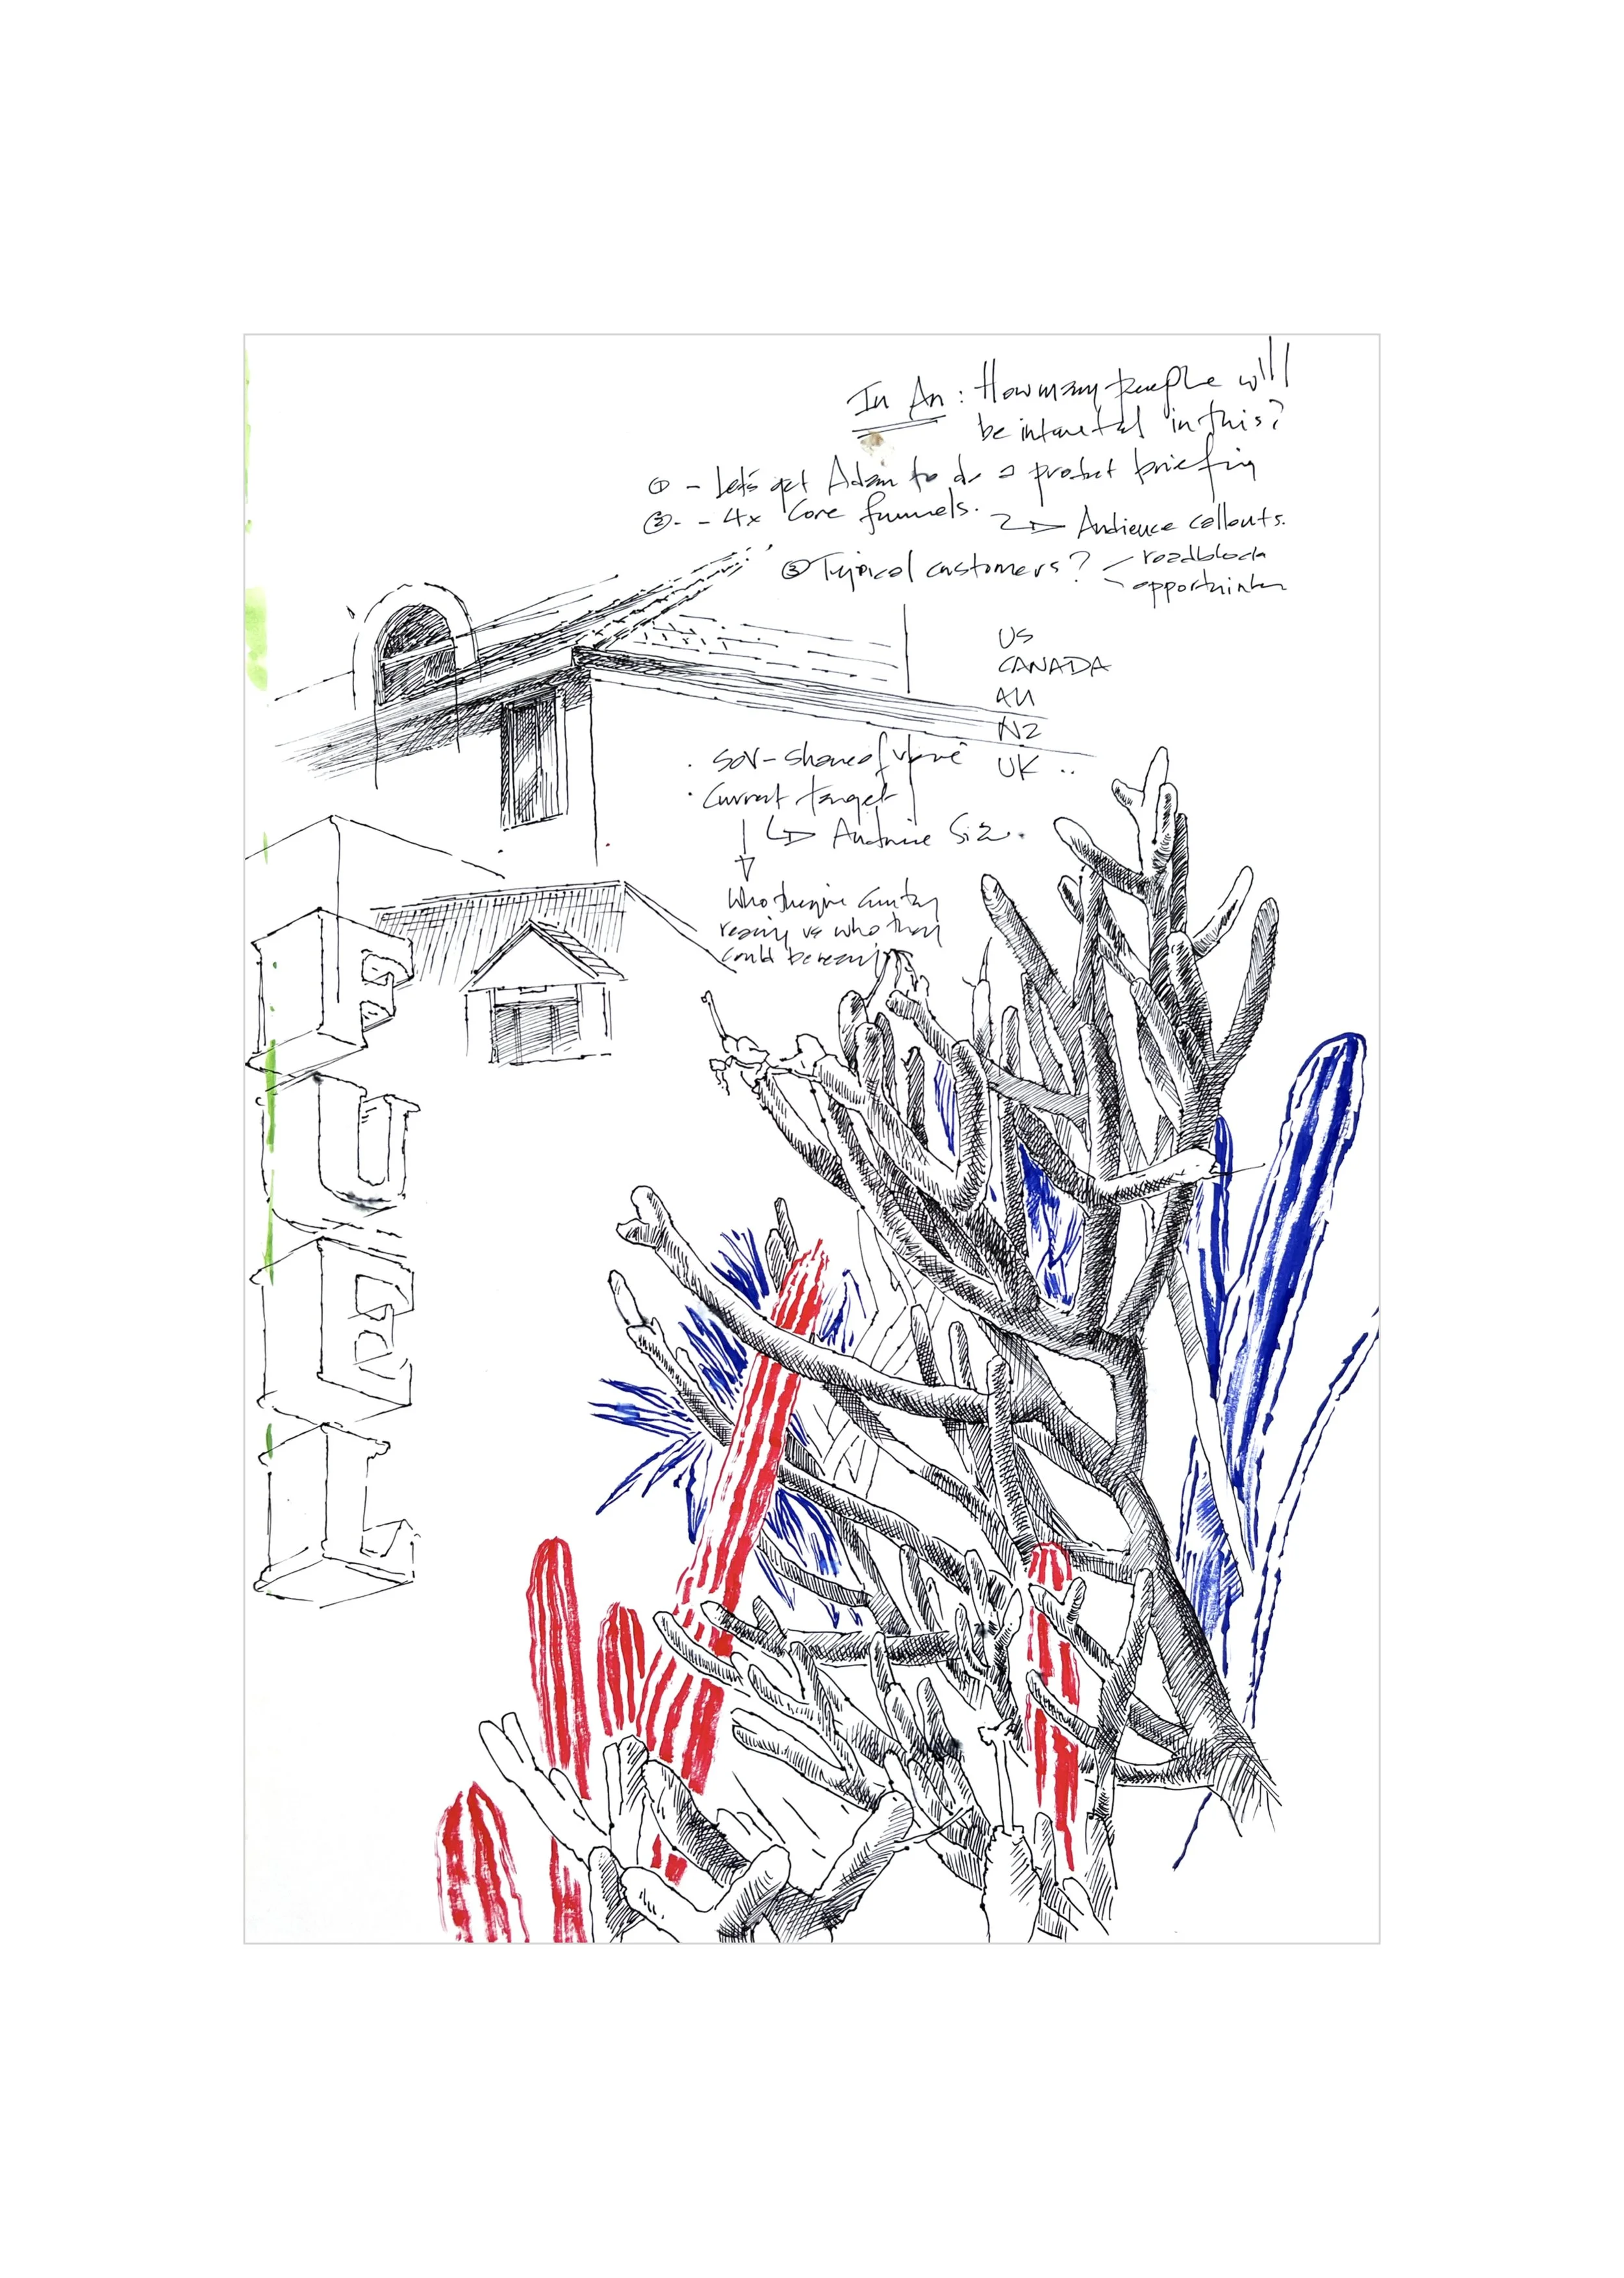 In An : How many people will
be interested in this?
① - Let's get Adam to do a product briefing
② - - 4x Core funnels.
Audience callouts.
③ Typical customers?
roadblocks
opportunities
US
CANADA
AU
NZ
UK ..
· SOV - Share of
· Current target
Audience Size.
who they're
vs who they
could be
FUEL